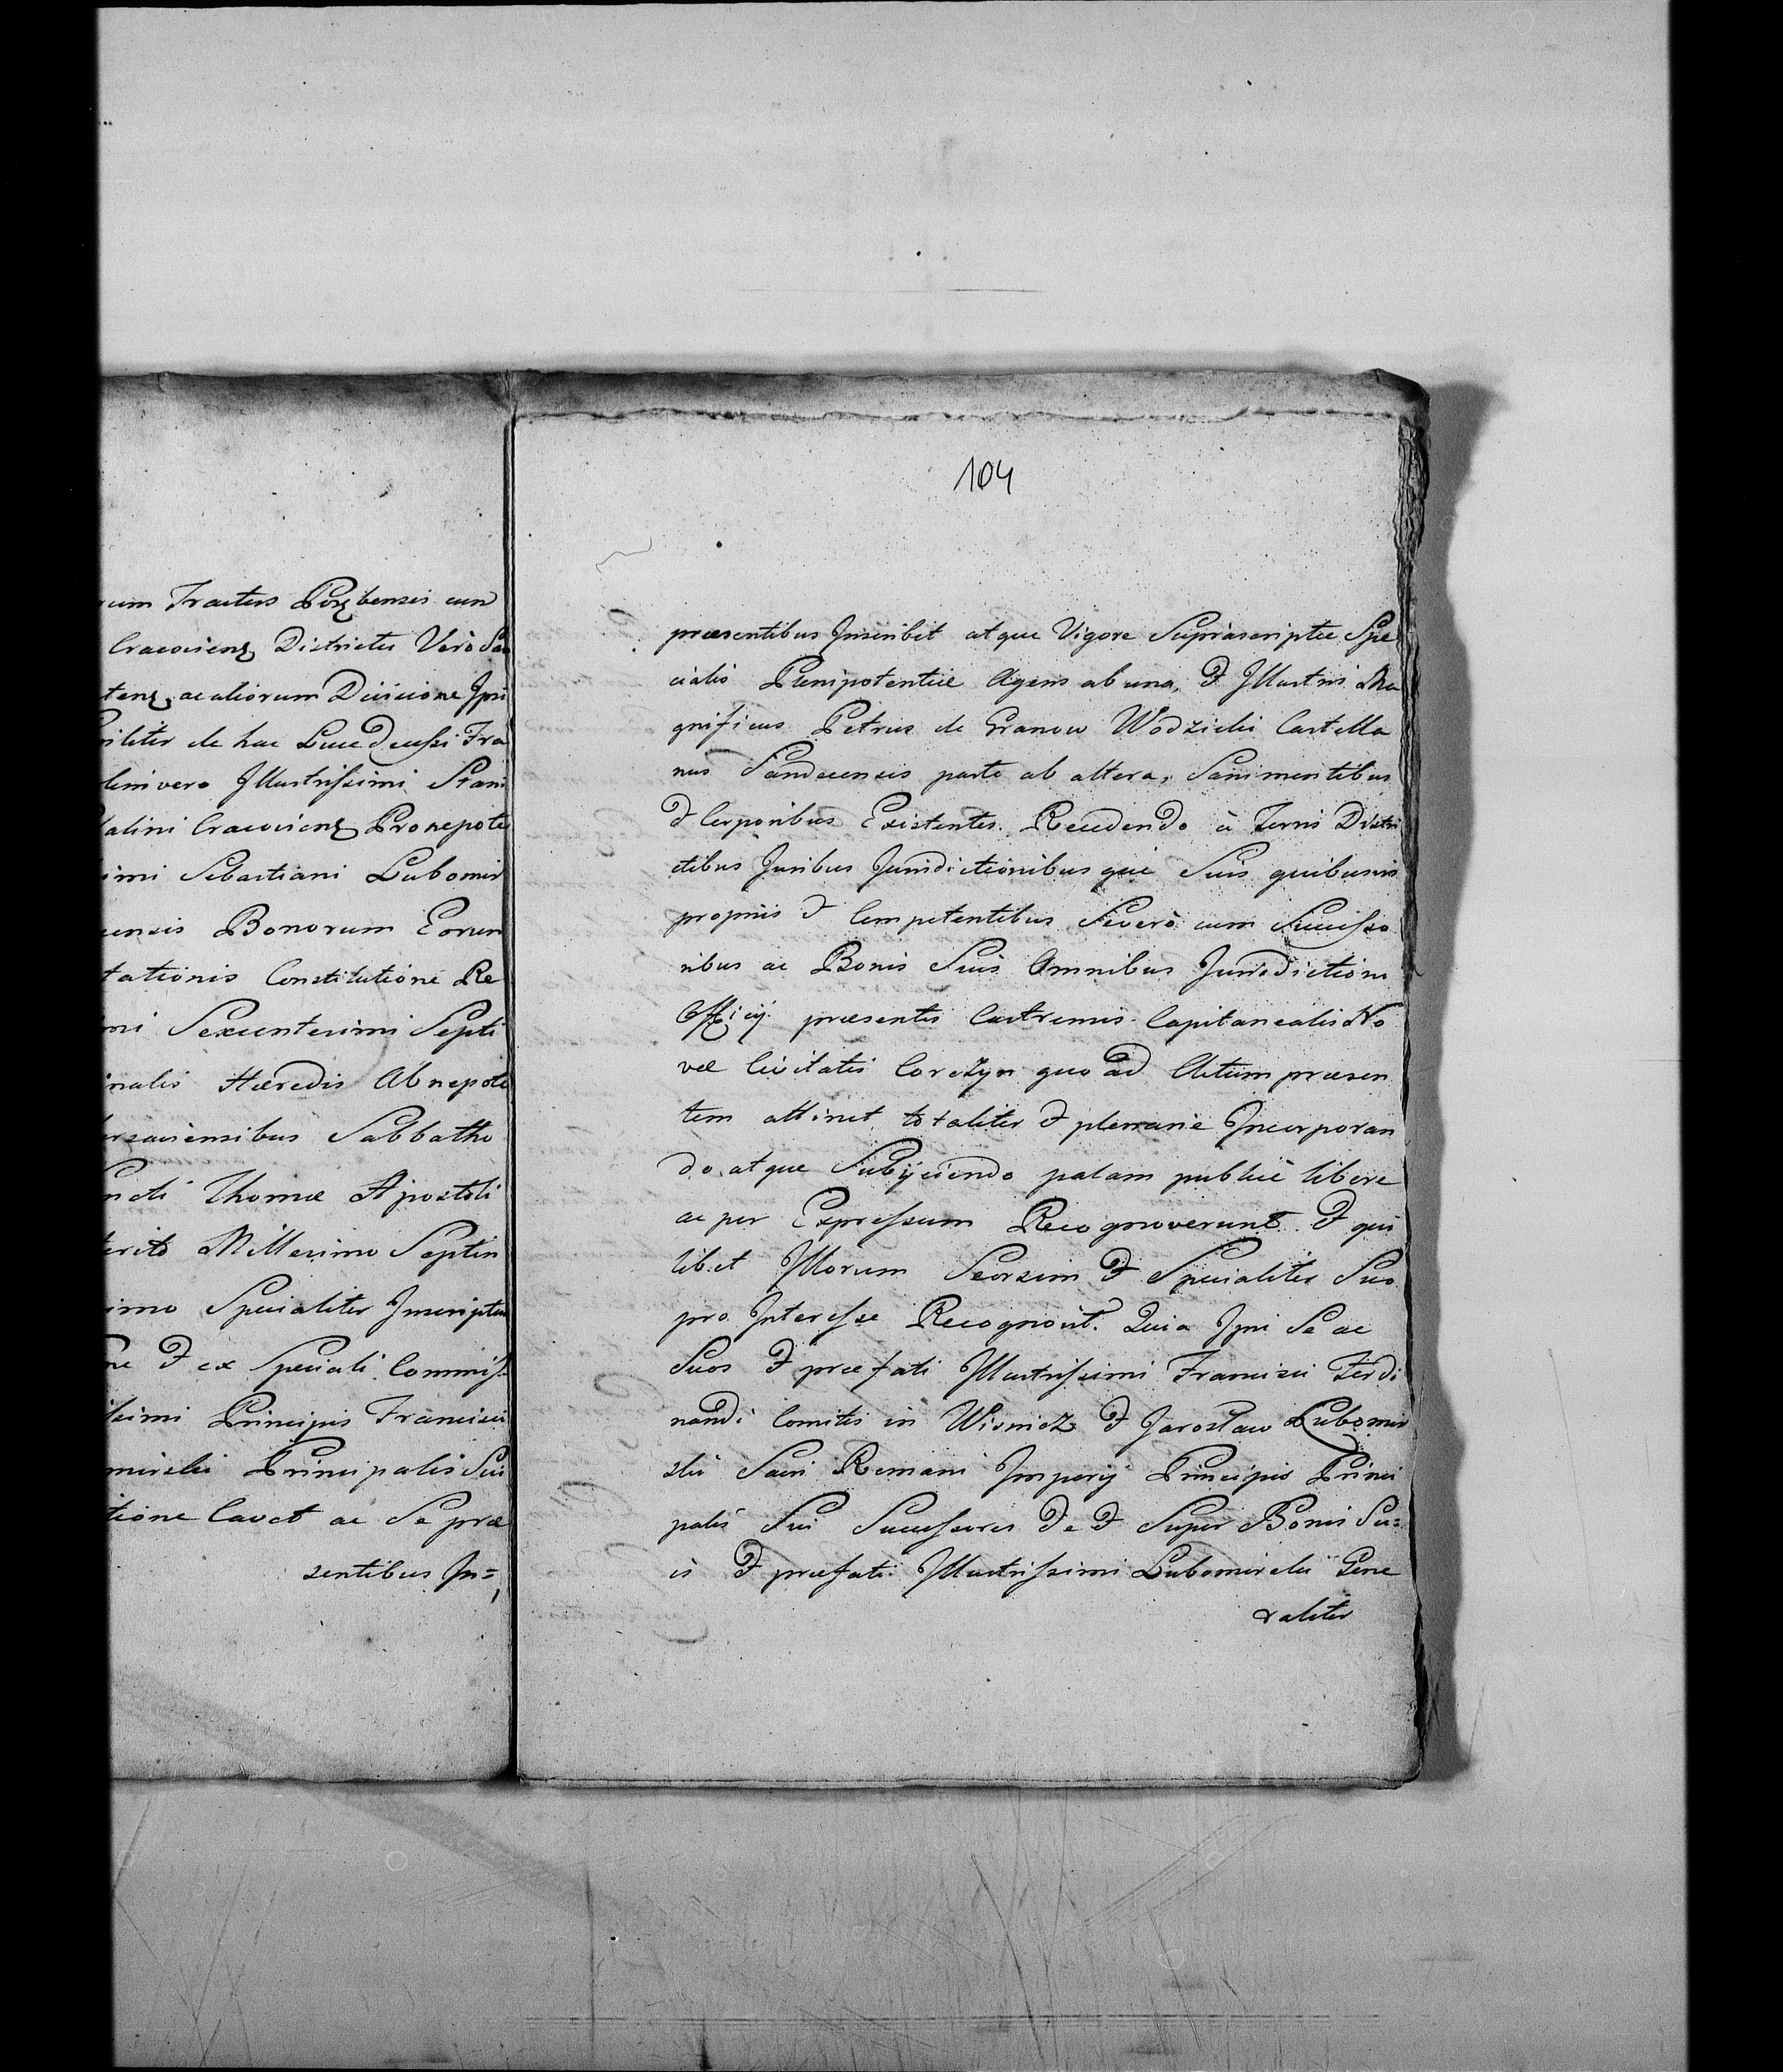 um Tractus Porębensis cum
Cracovienz Districtu Verò San
tenz ac aliorum Divisione Ipsi
biliter de hac Luce Decessi Fra
Olim vero Illustrissimi Stani
latini Cracovienz Pronepote
simi Sebastiani Lubomir
iensis Bonorum Eorum
tationis Constitutione Re
mi Sexcentesimi Septi
inalis Hæredis Abnepote
rsaviensibus Sabbatho
ncti Thomæ Apostoli
terito Millesimo Septin
imo Specialiter Inscriptum
ne & ex Speciali Commiss=
issimi Principis Francisci
mirskii Principalis Sui
tione Cavet ac Se præ
sentibus In=
104
præsentibus Inscribit atque Vigore Supràscriptæ Spe
cialis Plenipotentiæ Agens ab una, & Illustris Ma
gnificus Petrus de Granow Wodzicki Castella
nus Sandecensis parte ab altera, Sani mentibus
& Corporibus Existentes. Recedendo à Terris Distri
ctibus Juribus Jurisdictionibus que Suis quibusvis
proprijs & Competentibus Severò cum Successo
ribus ac Bonis Suis Omnibus Jurisdictioni
Officij præsentis Castrensis Capitanealis No
væ Civitatis Corczyn quo ad Actum præsen
tem attinet totaliter & plenarie Incorporan
do atque Subijciendo palam publicè libere
ac per Expressum Recognoverunt & qui
libet Illorum Seorsim & Specialiter Suo
pro Interesse Recognovit. Quia Ipsi Se ac
Suos & præfati Illustrissimi Francisci Ferdi
nandi Comitis in Wisnicz & Jarosław Lubomir
skii Sacri Romani Imperij Principis Princi
palis Sui Successores De & Super Bonis Su=
is & præfati Illustrissimi Lubomirskii Gene
raliter